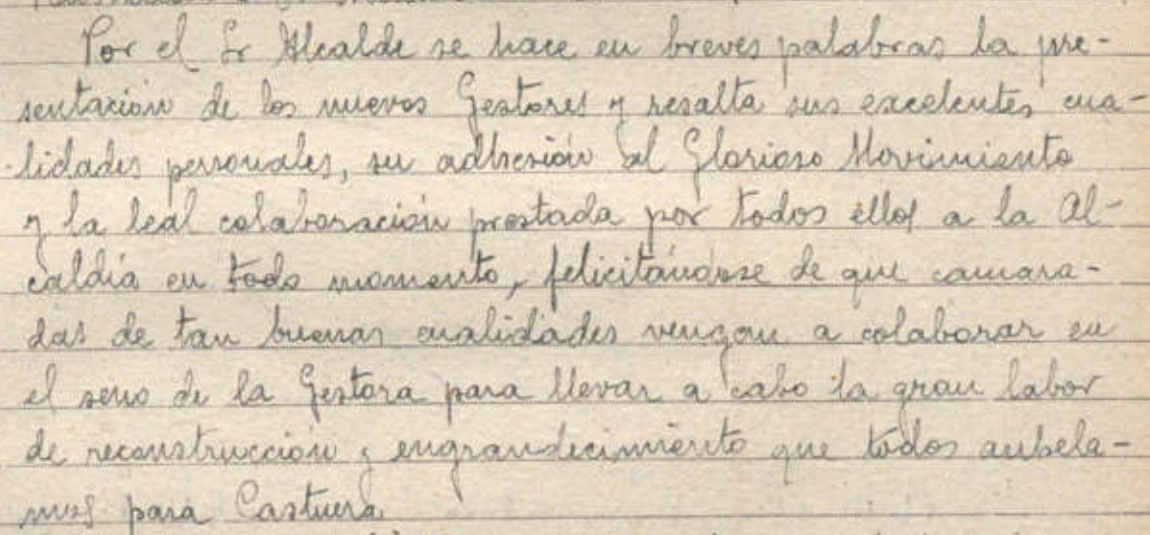 Por el Sr Alcalde se hace en breves palabras la pre-
sentación de los nuevos Gestores y resalta sus excelentes cua-
lidades personales, su adhesión al Glorioso Movimiento
y la leal colaboración prestada por todos ellos a la Al-
caldía en todo momento, felicitándose de que camara-
das de tan buenas cualidades vengan a colaborar en
el seno de la Gestora para llevar a cabo la gran labor
de reconstrucción y engrandecimiento que todos anhela-
mos para Castuera